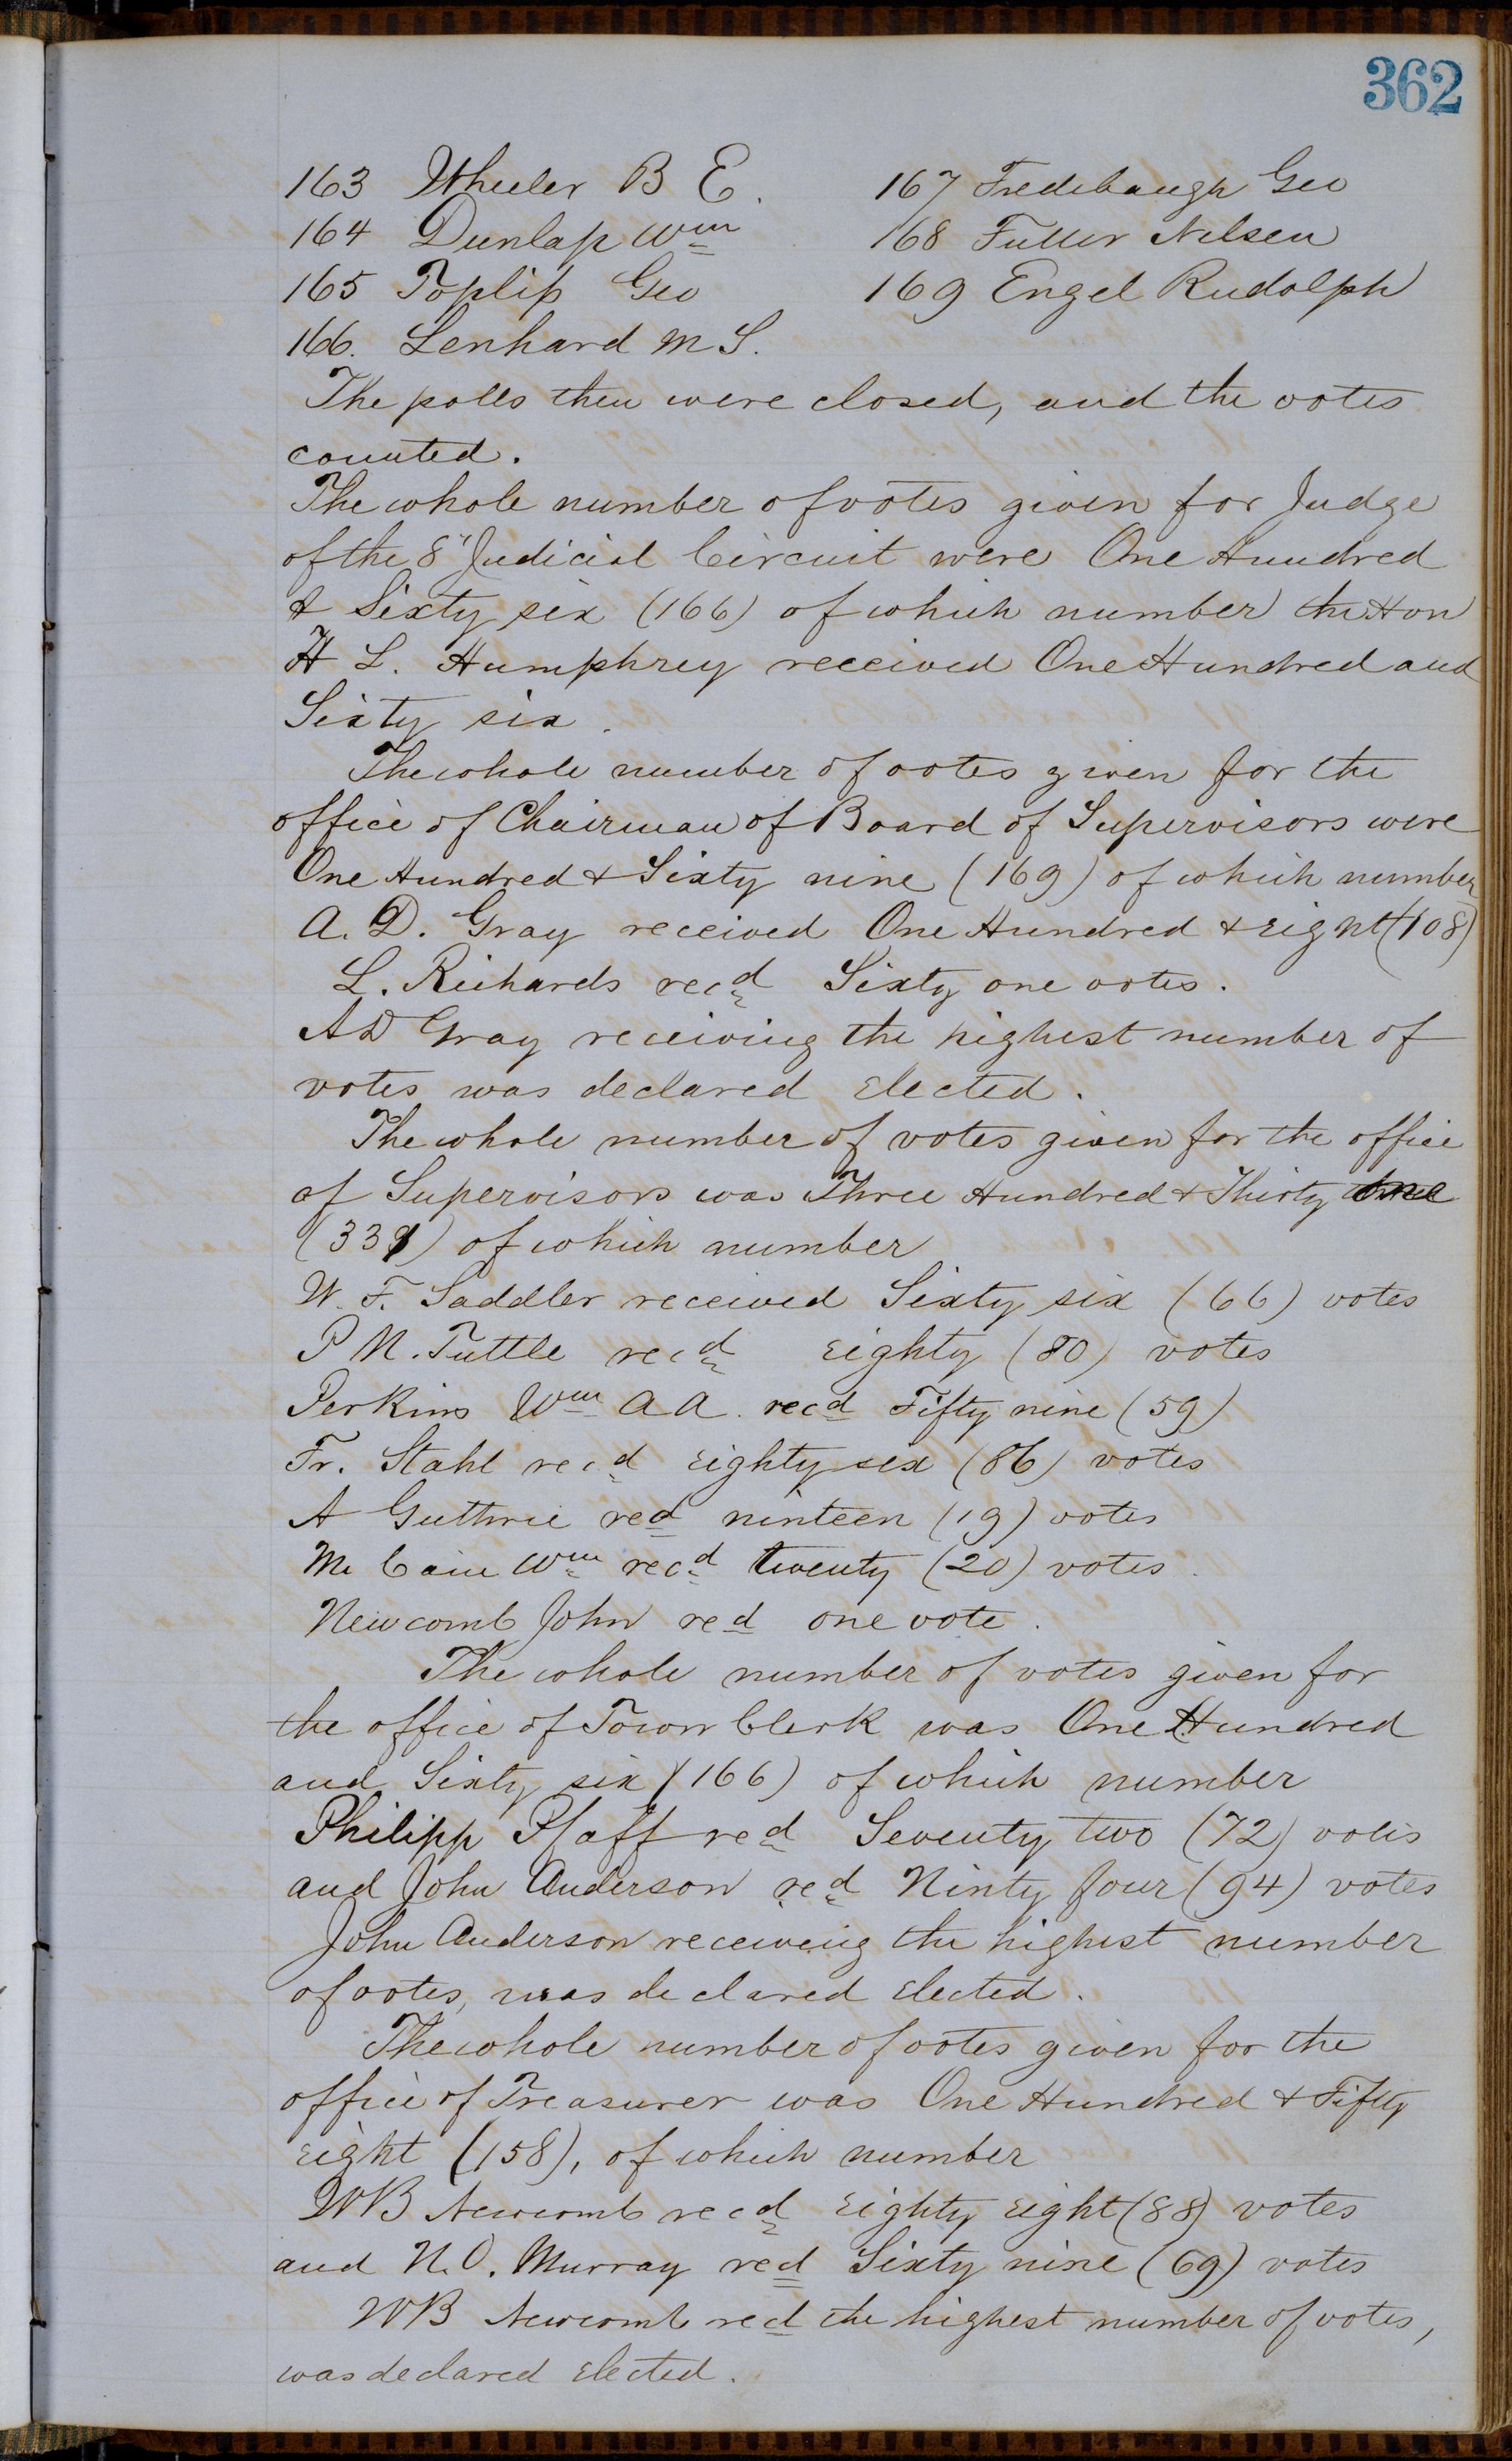 362
163 Wheeler B E. 167 Fredebaugh Geo
164 Dunlap Wm 168 Fuller Nelsen
165 Toplif Geo 169 Engel Rudolph
166. Lenhard M S.
The polls then were closed, and the votes
counted.
The whole number of votes given for Judge
of the 8" Judicial Circuit were One Hundred
& Sixty six (166) of which number the Hon
H L. Humphrey received One Hundred and
Sixty six.
The whole number of votes given for the
office of Chairman of Board of Supervisors were
One Hundred & Sixty nine (169) of which number
A. D. Gray received One Hundred & eight (108)
L. Richards recd Sixty one votes.
A D Gray receiving the highest number of
votes was declared elected.
The whole number of votes given for the office
of Supervisors was Three Hundred & Thirty one
(331) of which number
W. F. Saddler received Sixty six (66) votes
P M. Tuttle recd eighty (80) votes
Perkins Wm A A. recd Fifty nine (59)
Fr. Stahl recd eighty six (86) votes
A Guthrie red ninteen (19) votes
Mc Cain Wm recd twenty (20) votes.
Newcomb John red one vote.
The whole number of votes given for
the office of Town Clerk was One Hundred
and Sixty six (166) of which number
Philipp Pfaff red Seventy two (72) votes
and John Anderson red Ninty four (94) votes
John Anderson receiveing the highest number
of votes, was declared elected.
The whole number of votes given for the
office of Treasurer was One Hundred & Fifty
eight (158), of which number
W B Newcomb recd eighty eight (88) votes
and N. O. Murray red Sixty nine (69) votes
W B Newcomb red the highest number of votes,
was declared elected.